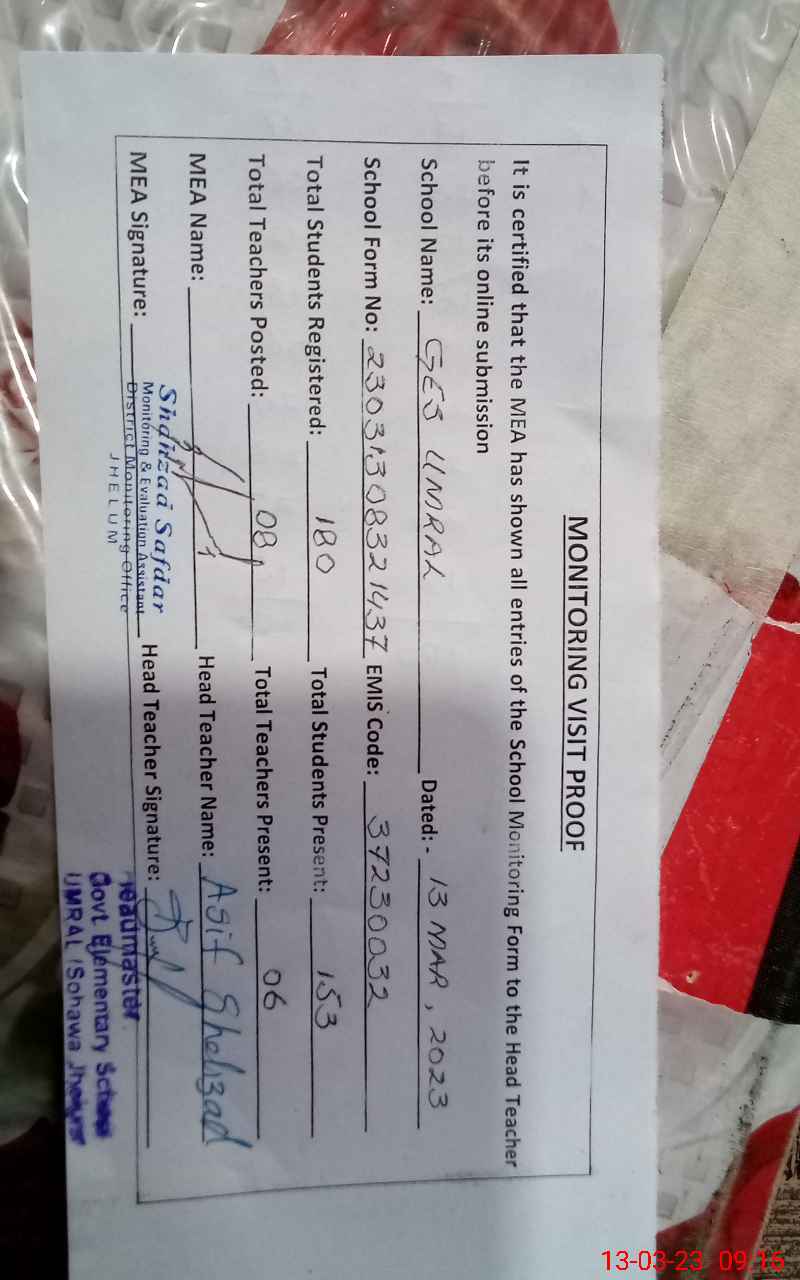 MONITORING VISIT PROOF
It is certified that the MEA has shown all entries of the School Monitoring Form to the Head Teacher
before its online submission
School Name: GES UMRAL Dated: - 13 MAR, 2023
School Form No: 23031308321437 EMIS Code: 37230032
Total Students Registered: 180 Total Students Present: 153
Total Teachers Posted: 08 Total Teachers Present: 06
MEA Name: Head Teacher Name: Asif Shehzad
MEA Signature: Head Teacher Signature:
Shahzad Safdar
Monitoring & Evaluation Assistant
District Monitoring Office
JHELUM
Headmaster
Govt. Elementary School
UMRAL (Sohawa Jhelum
13-03-23 09:16